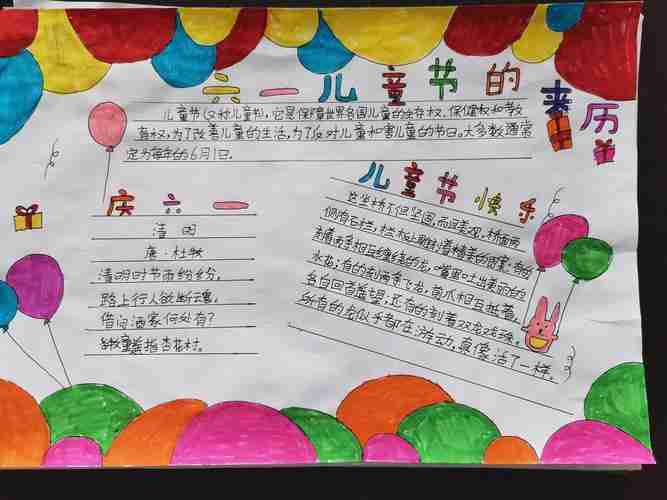 六一儿童节的来历
儿童节(又称儿童节),它是保障世界各国儿童的生存权、保健权和教
育权,为了改善儿童的生活,为了反对儿童和害儿童的节日。大多数通常
定为每年的6月1日.
庆六一
清明
唐·杜牧
清明时节雨纷纷,
路上行人欲断魂,
借问酒家何处有?
牧童遥指杏花村。
儿童节快乐
这坐桥不但坚固,而且美观,桥面两
侧有石栏,栏板上雕刻着精美的图案:有的
刻着两条相互缠绕的龙,嘴里吐出美丽的
水花;有的刻两条飞龙,前爪相互抵着,
各自回首遥望;还有的刻着双龙戏珠。
所有的龙似乎都在游动,真像活了一样。